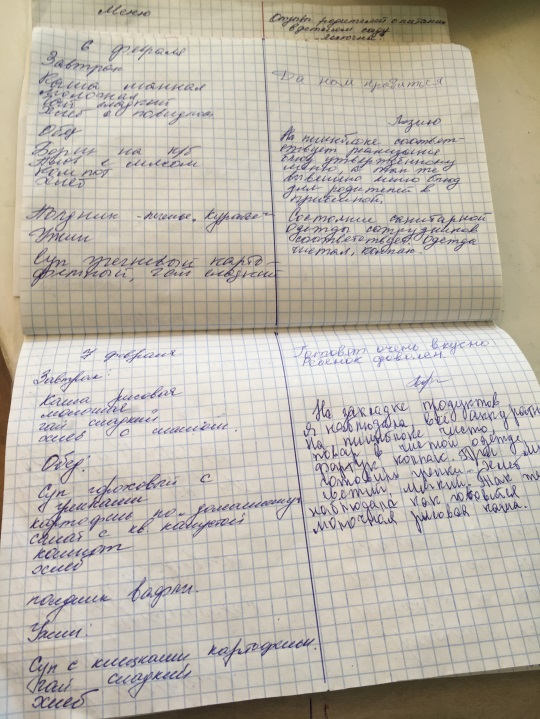 Меню
Отзыв родителей о питании
в детском саду
6 февраля
Завтрак
Каша манная
молочная
чай сладкий
хлеб с повидлом
Обед
Борщ на к/б
Плов с мясом
Компот
хлеб
Полдник - печенье "Курабье"
Ужин
Суп гречневый карто-
фельный, чай сладкий
Да нам нравится
На пищеблоке соответ-
ствует
блюд утвержденному
меню, а так же
вывешено меню блюд
для родителей в
приемной.
Состояние санитарной
одежды сотрудников
соответствует. Одежда
чистая, колпак.
7 февраля
Завтрак:
Каша рисовая
молочная
чай сладкий
хлеб с маслом.
Обед:
Суп гороховый с
гренками
картофель по-домашнему
салат с кв капустой
компот
хлеб
полдник вафли.
Ужин:
Суп с клецками картофельн.
чай сладкий
хлеб
Готовят очень вкусно
Ребенок доволен
На закладке продуктов
я наблюдала, все аккуратно
На пищеблоке чисто,
повар в чистой одежде,
фартук колпак. При
готовили гренки. Хлеб
свежий, мягкий. Так же
наблюдала как готовится
молочная рисовая каша.